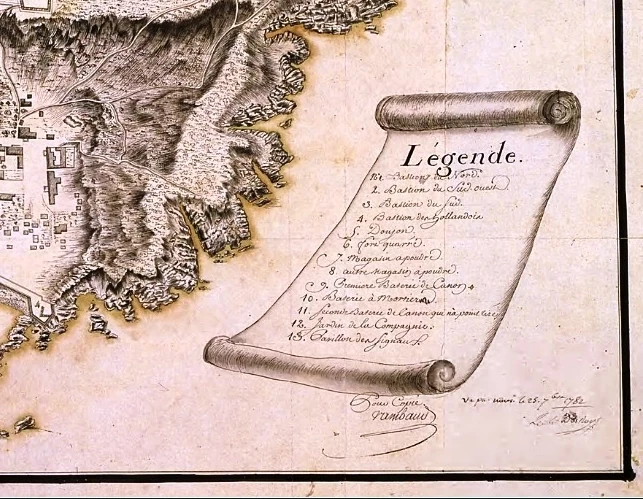 Légende.
1er Bastion du Nord.
2. Bastion du Sud ouest
3. Bastion du Sud.
4. Bastion des hollandois
5. Donjon.
6. fort quarré.
7. Magasin a poudre.
8. autre Magasin a poudre.
9. Premiere Baterie de Canon
10. Baterie à Mortiers
11. Seconde Baterie de Canon qui n'a point
12. Jardin de la Compagnie.
13. Pavillon des Signaux
Pour Copie
Rambaud
Vu par nous le 25. 7bre 1782